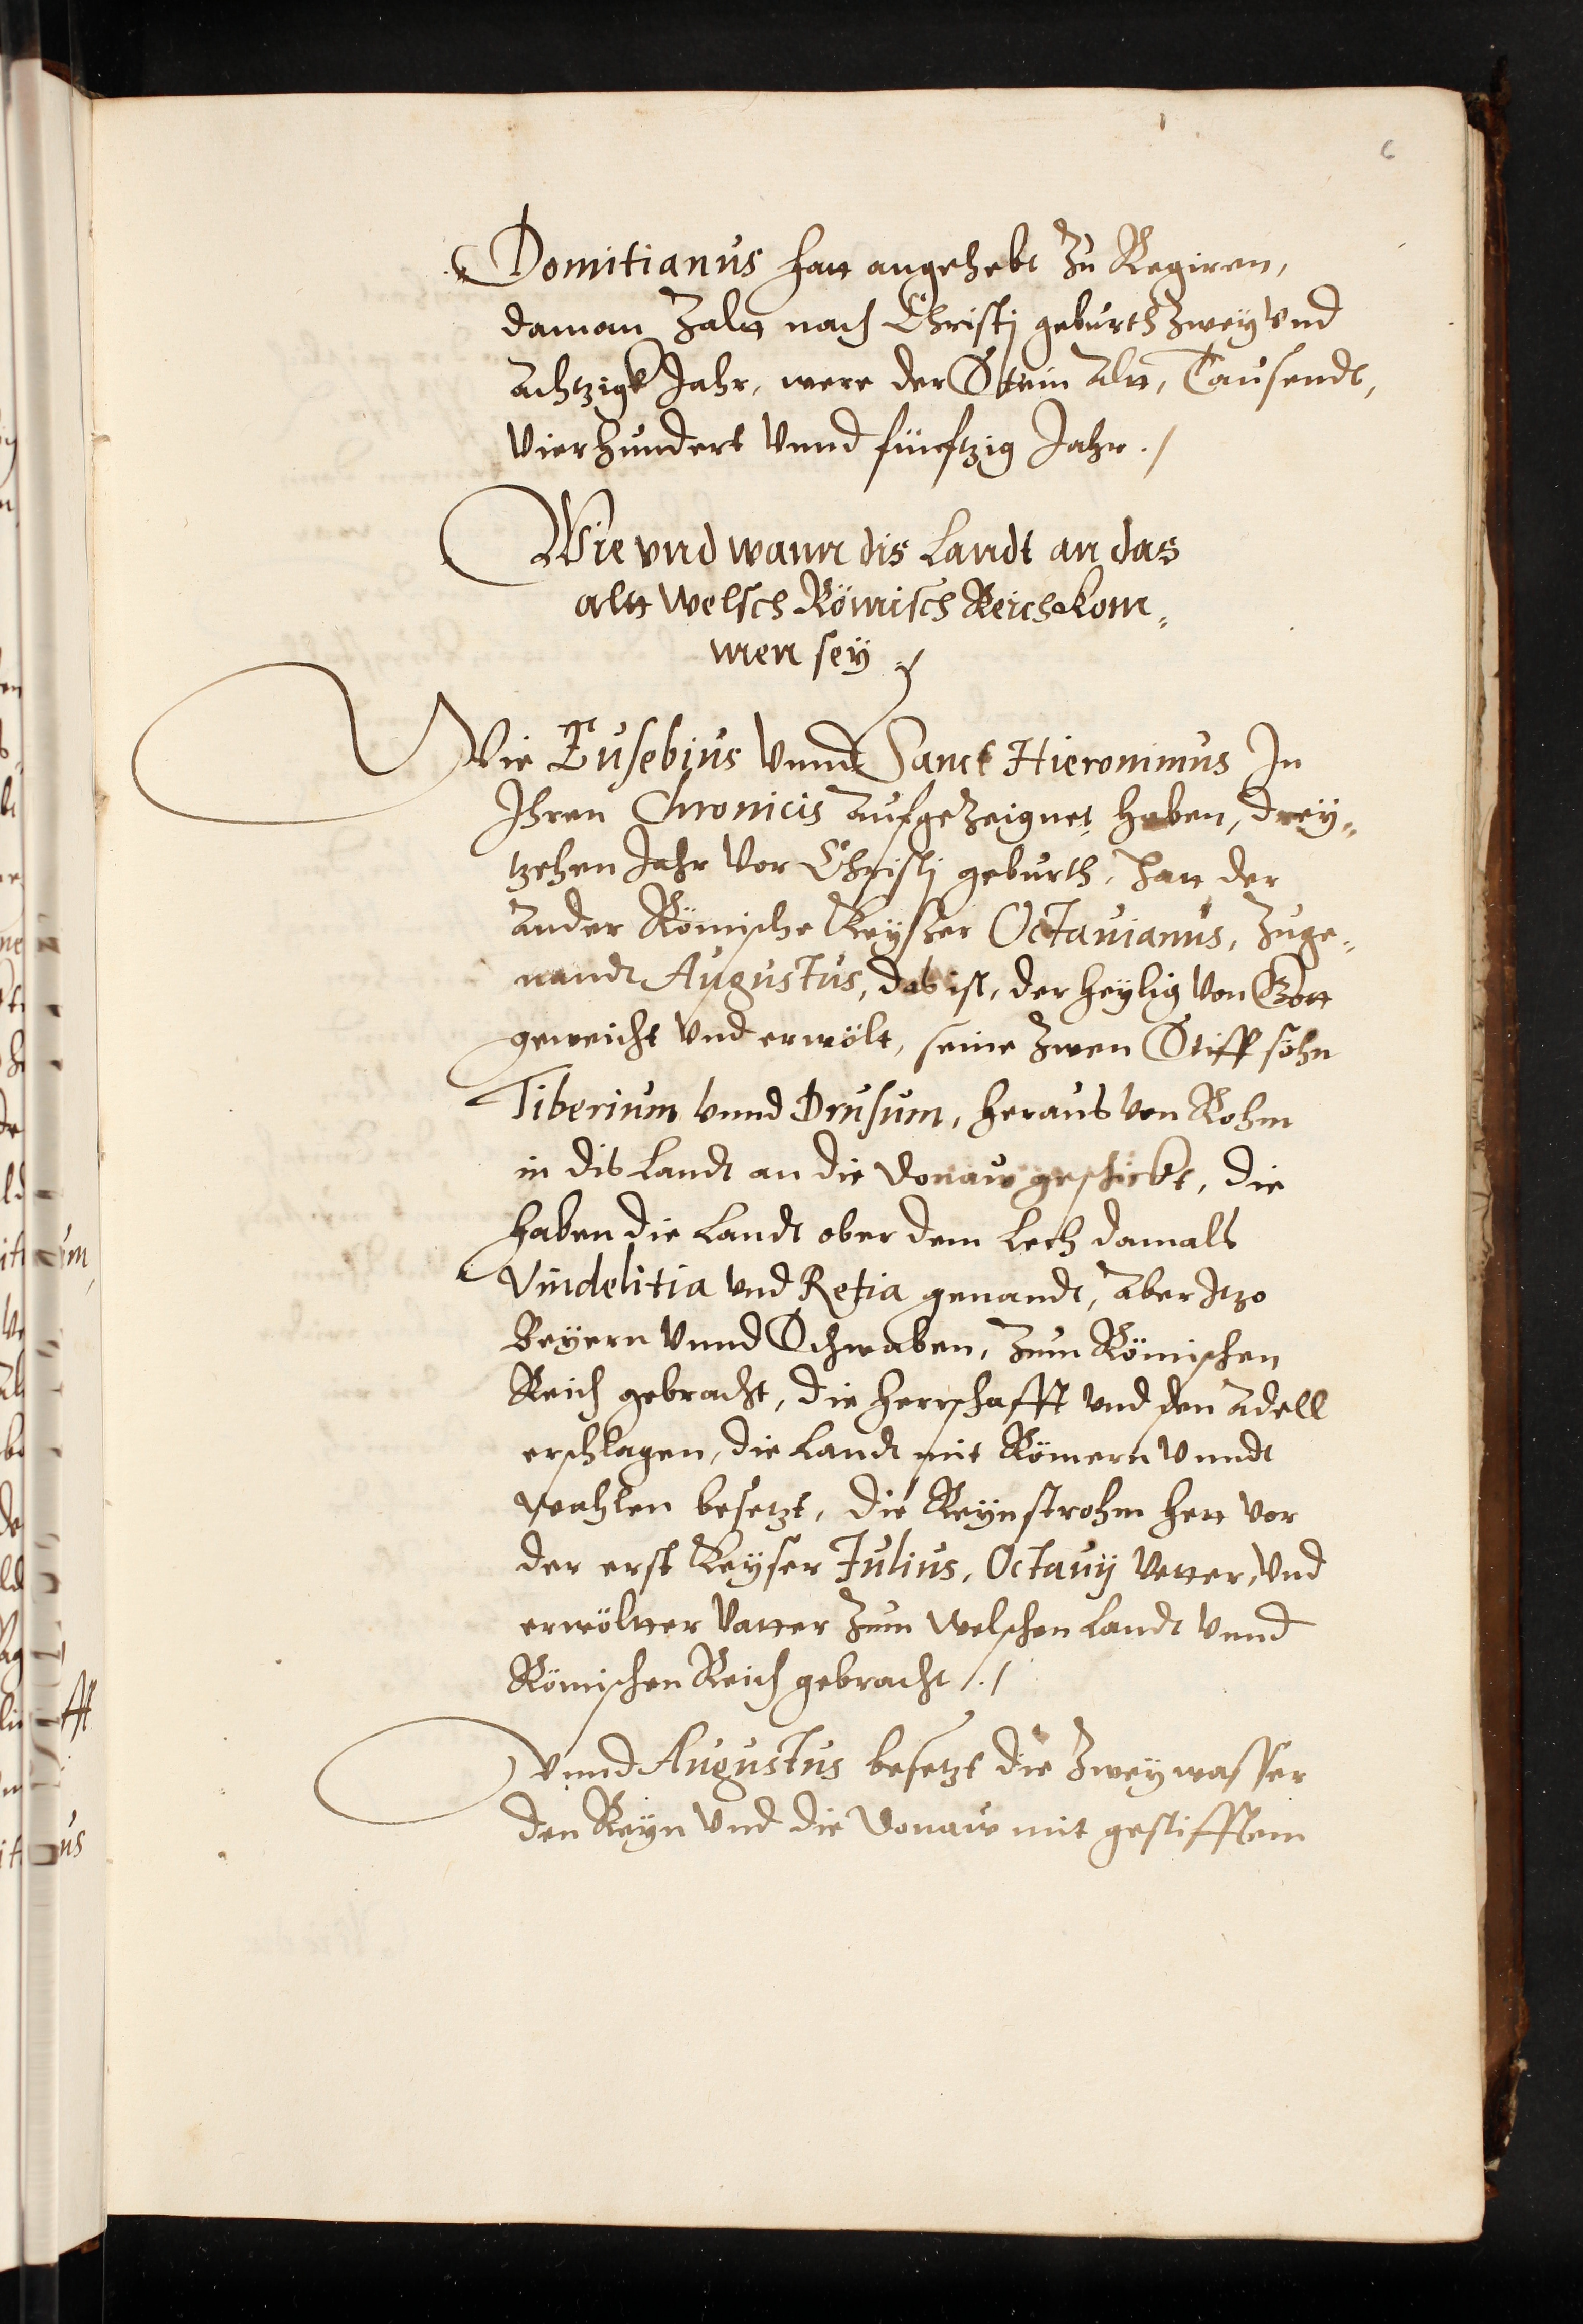 6
Domitianus hatt angehebt Zu Regiren,
daman Zaltt nach Christj geburth Zwey Vnd
Achtzigk Jahr, were der Stein Altt, Tausendt,
Vierhundert Vnnd fünftzig Jahr ./
Wie vnd wann dis Landt an das
altt Welsch Römisch Reich kom„
men sey ./
Wie Eusebius Vnnd Sanct Hieronimus In
Ihren Chronicis Aufgezeignet haben, drey„
tzehen Jahr Vor Christj geburth, hatt der
Ander Römische Keyßer Octauianus, Zuge„
nandt Augustus, das ist, der heylig Von Gott
geweicht Vnd erwölt, seine Zwen Stiff söhn
Tiberium Vnnd Drusum, heraus von Rohm
in dis Landt an die Donaw geschickt, die
haben die Landt ober dem Lech damals
Vindelitia Vnd Retia genandt, Aber Itzo
Beyern Vnnd Schwaben, Zum Römischen
Reich gebracht, die herrschafft Vnd den Adell
erschlagen, die Landt mit Römern Vnndt
Wahlen besetzt, die Reynstrohm hett Vor
der erst Keyser Julius, Octauij Vetter, Vnd
erwöltter Vatter Zum Welschen Landt Vnnd
Römischen Reich gebracht /./
Vnnd Augustus besetzt die Zwey wasser
den Reyn Vnd die Donaw mit gestifftem